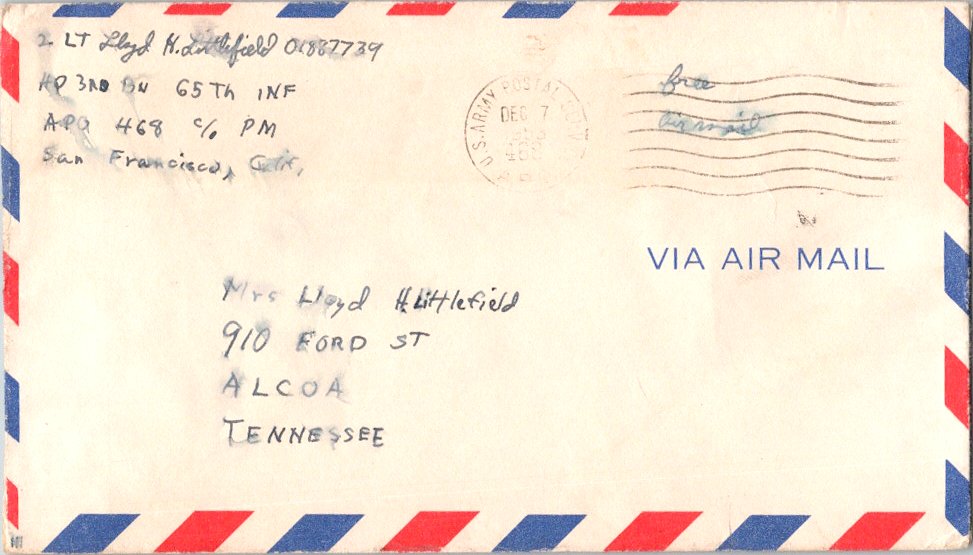 2 LT Lloyd H. Littlefield 01887739
HQ 3RD BN 65Th INF
APO 468 c/o PM
San Francisco, Calif.
U.S. ARMY POSTAL
DEC 7
free
air mail
VIA AIR MAIL
Mrs Lloyd H. Littlefield
910 FORD ST
ALCOA
TENNESSEE